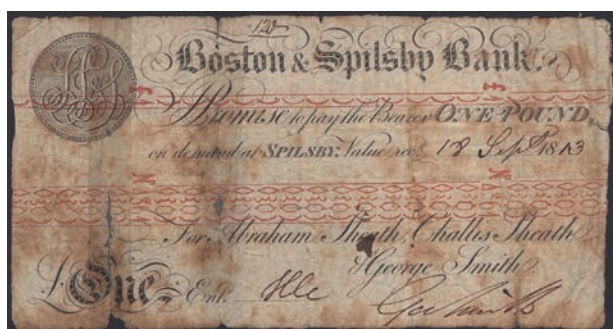 120
Boston & Spilsby Bank.
I Promise to pay the Bearer ONE POUND,
on demand at SPILSBY. Value recd. 18 Sept 1813
For Abraham Sheath, Challis Sheath
& George Smith.
£ One Entd.
Geo Smith